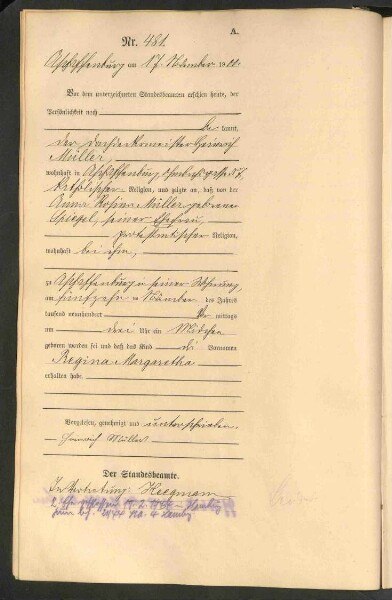 A.
Nr. 481.
Aschaffenburg am 17. November 1900.
Vor dem unterzeichneten Standesbeamten erschien heute, der
Persönlichkeit nach
be kannt,
der Dachdeckermeister Heinrich
Müller,
wohnhaft in Aschaffenburg,
katholischer Religion, und zeigte an, daß von der
Anna Rosina Müller geborene
Spiegel, seiner Ehefrau,
protestantischer Religion,
wohnhaft bei ihm,
zu Aschaffenburg in seiner Wohnung,
am fünfzehnten November des Jahres
tausend neunhundert mittags
um drei Uhr ein Mädchen
geboren worden sei und daß das Kind die Vornamen
Regina Margaretha
erhalten habe.
Vorgelesen, genehmigt und unterschrieben
Heinrich Müller
Der Standesbeamte.
In Vertretung